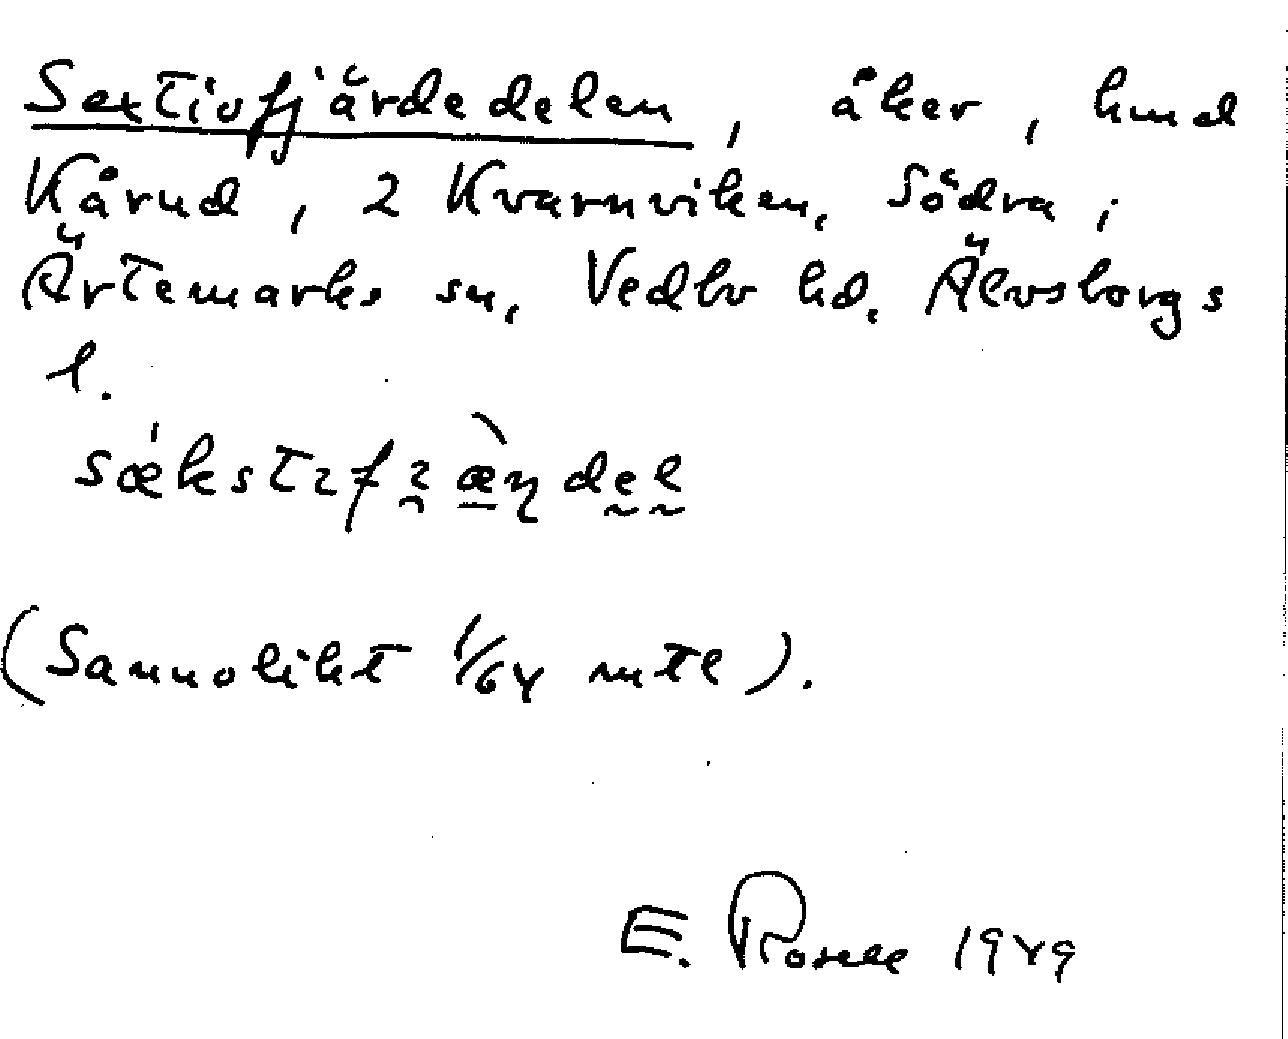 Sextiofjärdedelen, åker, hmd
Kårud, 2 Kvarnviken, Södra,
Ärtemarks sn, Vedbo hd. Älvsborgs
l.
(Sannolikt 1/64 mtl).
E. Rosell 1949